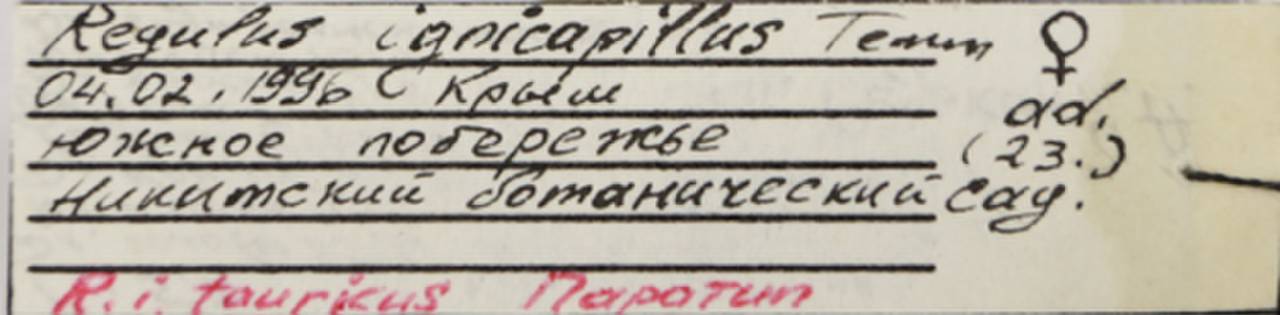 Regulus ignicapillus Temm ♀
04.02.1996 Крым ad.
южное побережье (23.)
Никитский ботанический сад.
R. i. tauricus Паратип